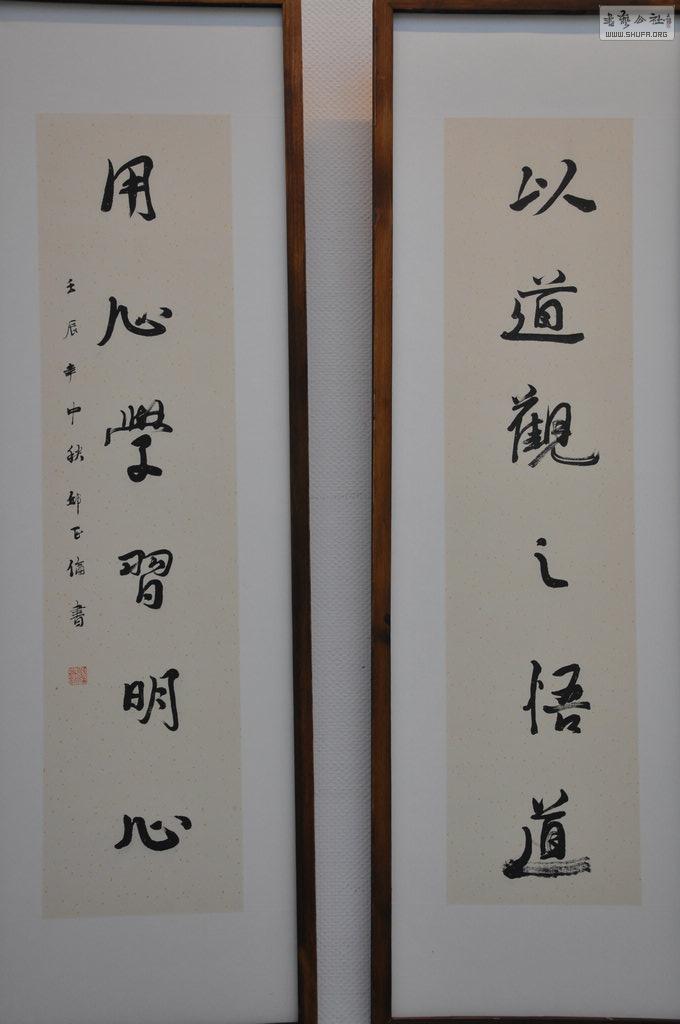 以道觀之悟道
用心學習明心
壬辰年中秋邱正倫書
書藝公社
WWW.SHUFA.ORG